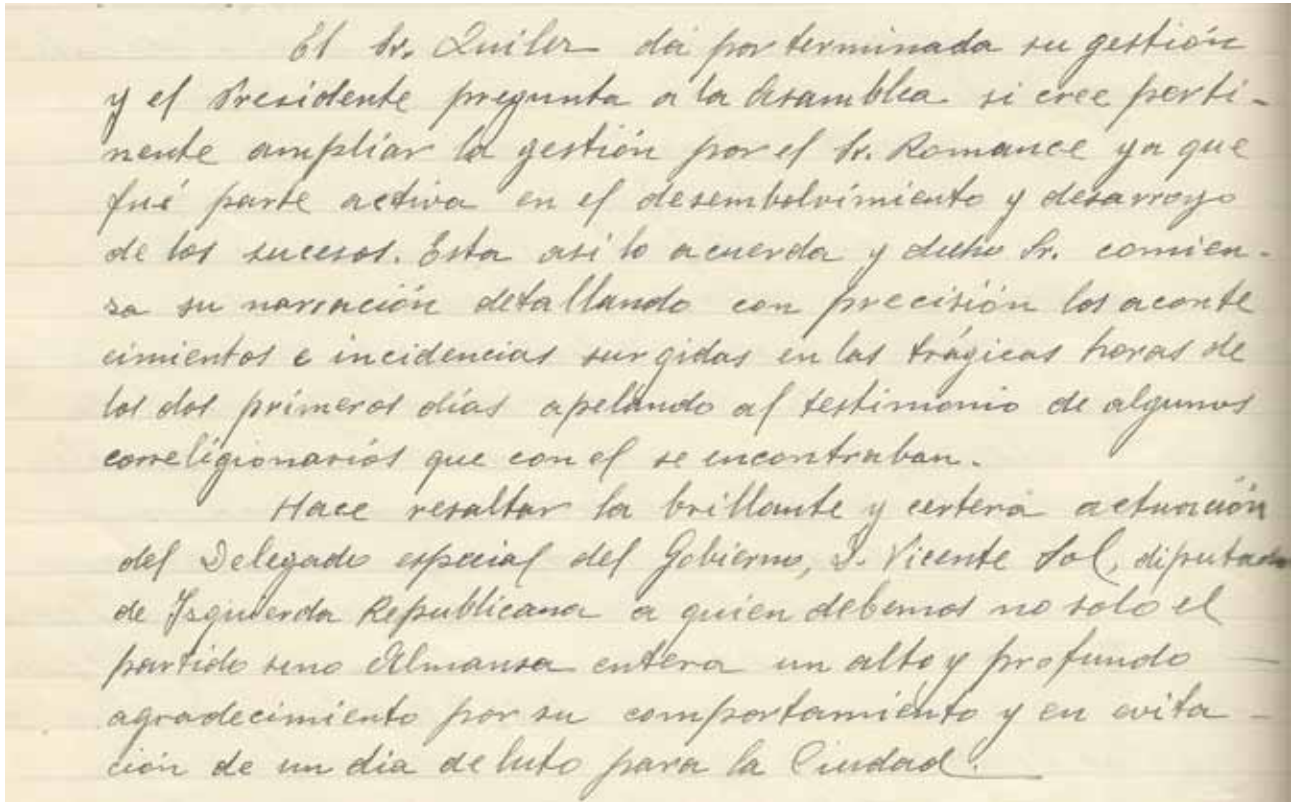 El Sr. Quiles da por terminada su gestión
y el Presidente pregunta a la Asamblea si cree perti-
nente ampliar la gestión por el Sr. Romance ya que
fué parte activa en el desembolvimiento y desarroyo
de los sucesos. Esta asi lo acuerda y dicho Sr. comien-
sa su narración detallando con precisión los aconte
cimientos e incidencias surgidas en las trágicas horas de
los dos primeros días apelando al testimonio de algunos
correligionarios que con el se encontraban.
Hace resaltar la brillante y certera actuación
del Delegado especial del Gobierno, D. Vicente Sol, diputado
de Izquierda Republicana a quien debemos no solo el
partido sino Almansa entera un alto y profundo
agradecimiento por su comportamiento y en evita-
ción de un dia de luto para la Ciudad.